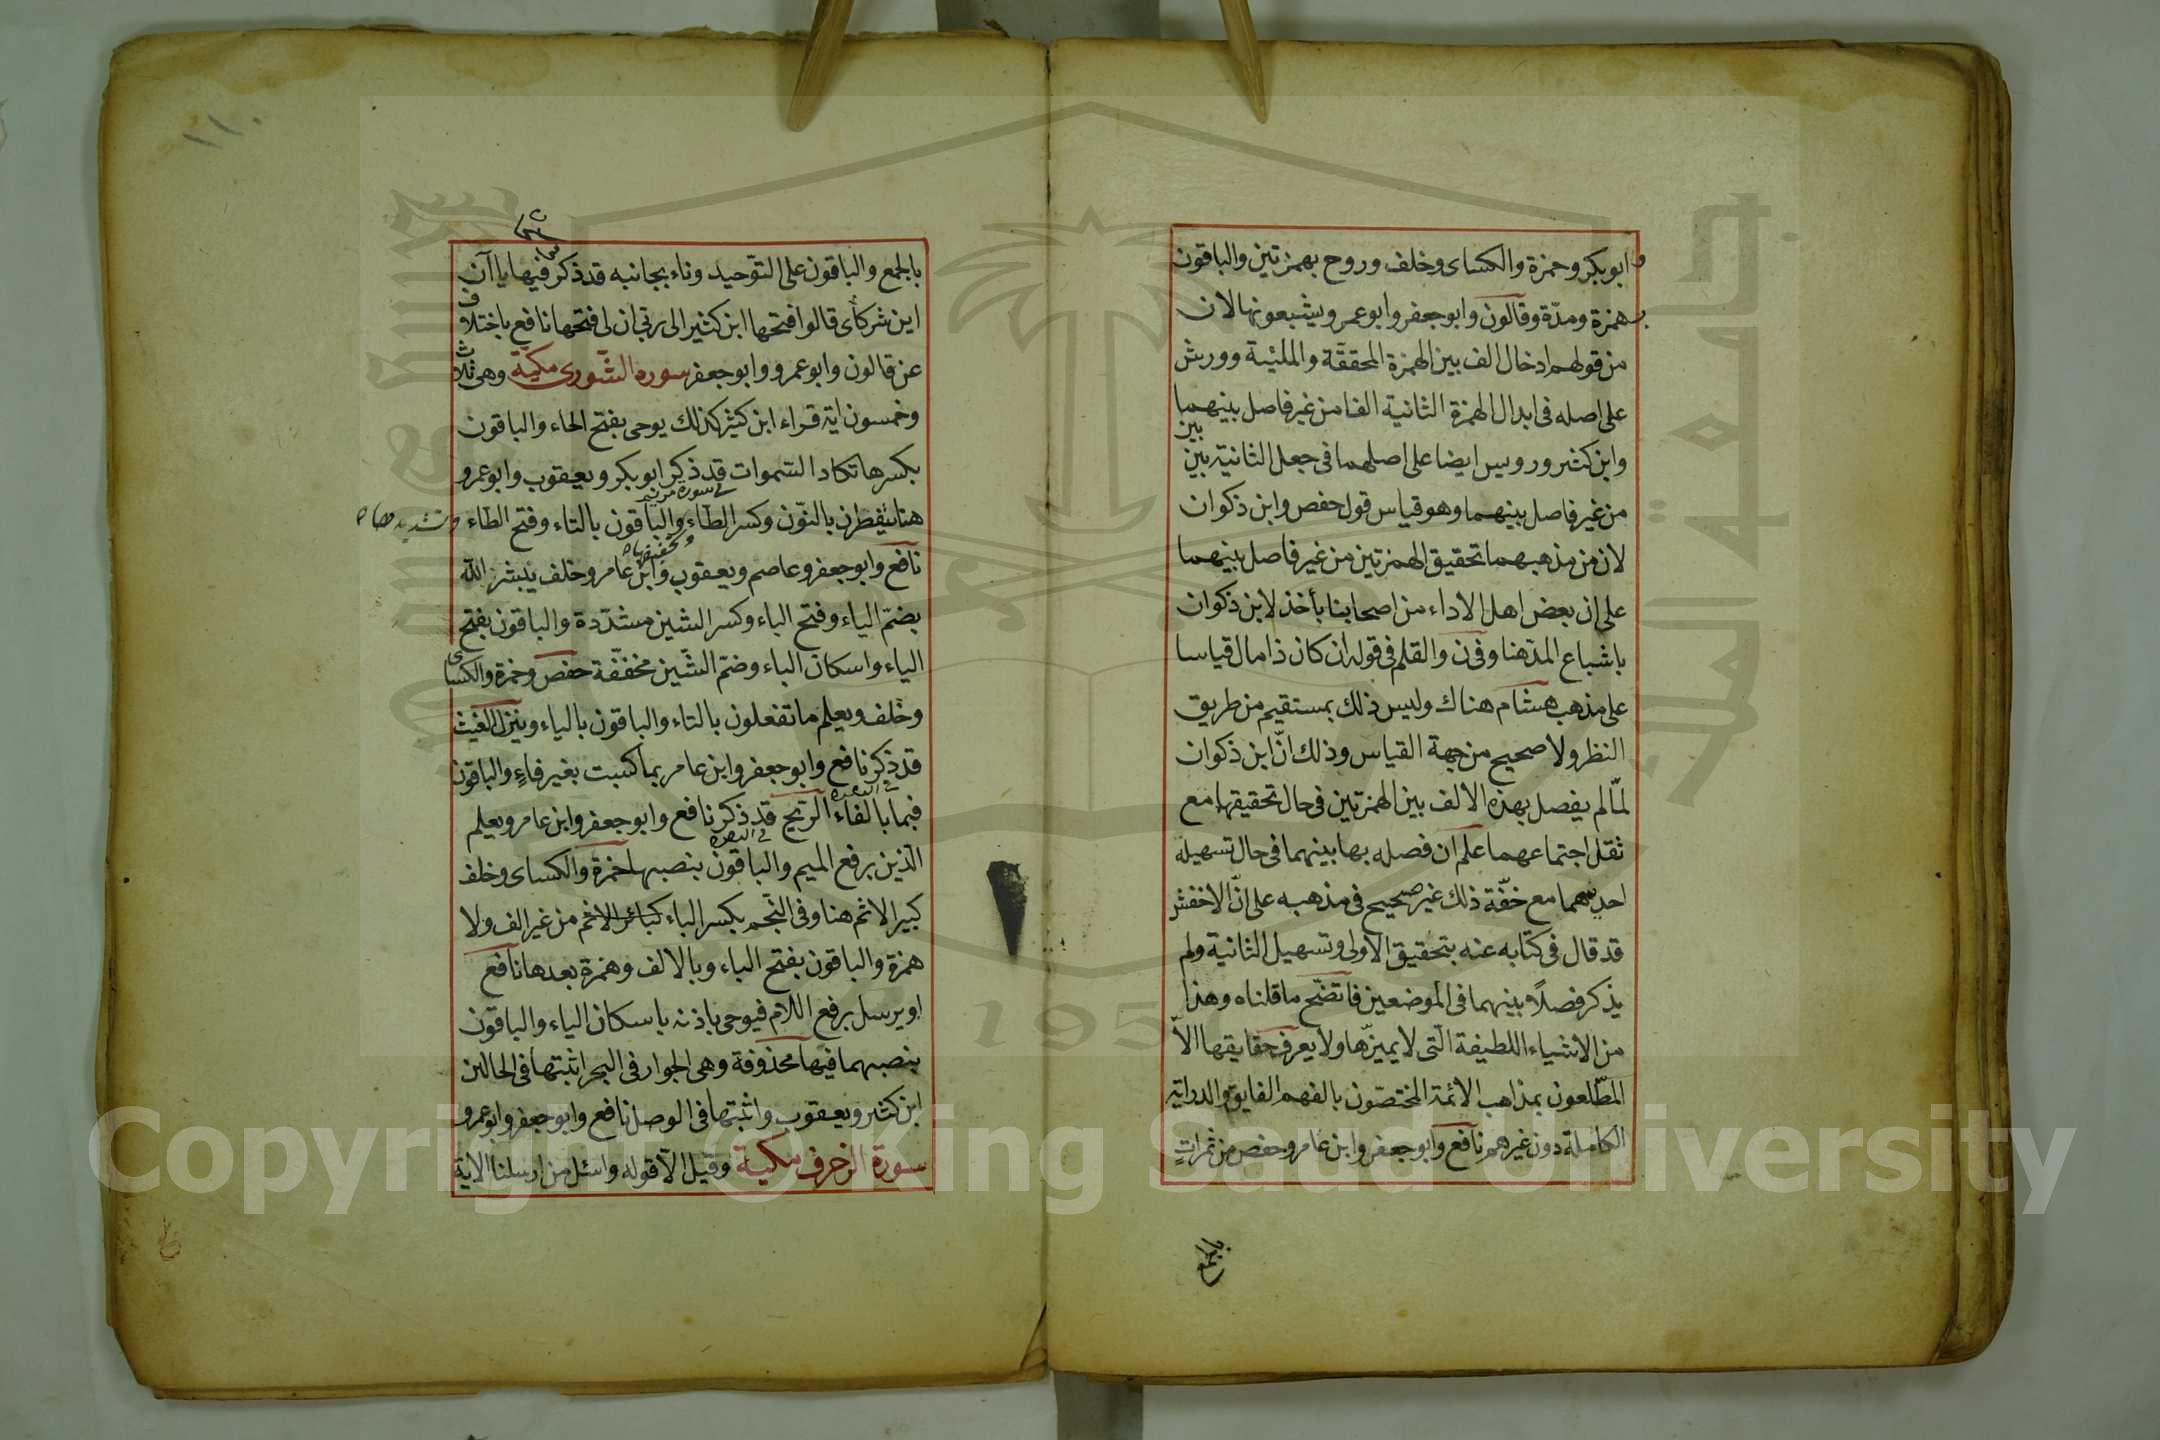 ابوبكر وحمزة والكساى وخلف وروح بهمزتين والباقون
بهمزة ومدّة وقالون وابوجعفر وابوعمرو يشبعونها لان
من قولهم ادخال الف بين الهمزة المحققة والملينة وورش
على اصله فى ابدال الهمزة الثانية الفا من غير فاصل بينهما
وابن كثير ورويس ايضا على اصلهما فى جعل الثانية بين بين
من غير فاصل بينهما وهو قياس قول حفص وابن ذكوان
لان من مذهبهما تحقيق الهمزتين من غير فاصل بينهما
على ان بعض اهل الاداء من اصحابنا يأخذ لابن ذكوان
باشباع المد هنا وفى ن والقلم فى قوله ان كان ذا مال قياسا
على مذهب هشام هناك وليس ذلك بمستقيم من طريق
النظر ولا صحيح من جهة القياس وذلك انّ ابن ذكوان
لمّا لم يفصل بهذه الالف بين الهمزتين فى حال تحقيقهما مع
ثقل اجتماعهما علم ان فصله بها بينهما فى حال تسهيله
احديهما مع خفّة ذلك غير صحيح فى مذهبه على انّ الاخفش
قد قال فى كتابه عنه بتحقيق الاولى وتسهيل الثانية ولم
يذكر فصلًا بينهما فى الموضعين فاتضح ما قلناه وهذا
من الاشياء اللطيفة الّتى لا يميزّها ولا يعرف حقايقها الاّ
المطّلعون بمذاهب الائمة المختصّون بالفهم الفايق والدراية
الكاملة دون غيرهم نافع وابوجعفر وابن عامر وحفص من ثمراتٍ
١١٠
بالجمع والباقون على التوّحيد وناء بجانبه قد ذكر فيها يا آن
اين شركاى قالوا فتحها ابن كثير الى ربّى ان لى فتحها نافع باختلاف
عن قالون وابوعمرو وابوجعفر سورة الشّورى مكيّة وهى ثلاث
وخمسون اية قراء ابن كثير كذلك يوحى بفتح الحاء والباقون
بكسرها تكاد السّموات قد ذكر ابوبكر ويعقوب وابوعمرو
فى سورة مريم
هنا ينفطرن بالنوّن وكسر الطّاء والباقون بالتاء وفتح الطاء وتشديدها
وتخفيفها
نافع وابوجعفر وعاصم ويعقوب وابن عامر وخلف يبشر الله
بضمّ الياء وفتح الباء وكسر الشين مشدّدة والباقون بفتح
الياء واسكان الباء وضمّ الشّين مخففّة حفص وحمزة والكساى
وخلف ويعلم ما تفعلون بالتاء والباقون بالياء وينزل الغيث
قد ذكر نافع وابوجعفر وابن عامر بما كسبت بغير فاءٍ والباقون
فبما بالفاء الرّيح قد ذكر نافع وابوجعفر وابن عامر ويعلم
الّذين برفع الميم والباقون بنصبها حمزة والكساى وخلف
كبير الاثم هنا وفى النّجم بكسر الباء كبائر الاثم من غير الف ولا
همزة والباقون بفتح الباء وبالالف وهمزة بعدها نافع
او يرسل برفع اللام فيوحى باذنه باسكان الياء والباقون
بنصبهما فيها محذوفة وهى الجوار فى البحر اثبتها فى الحالين
ابن كثير ويعقوب واثبتها فى الوصل نافع وابوجعفر وابوعمرو
سورة الزخرف مكية وقيل الاّ قوله واسئل من ارسلنا الاية
Copyright © King Saud University
1957